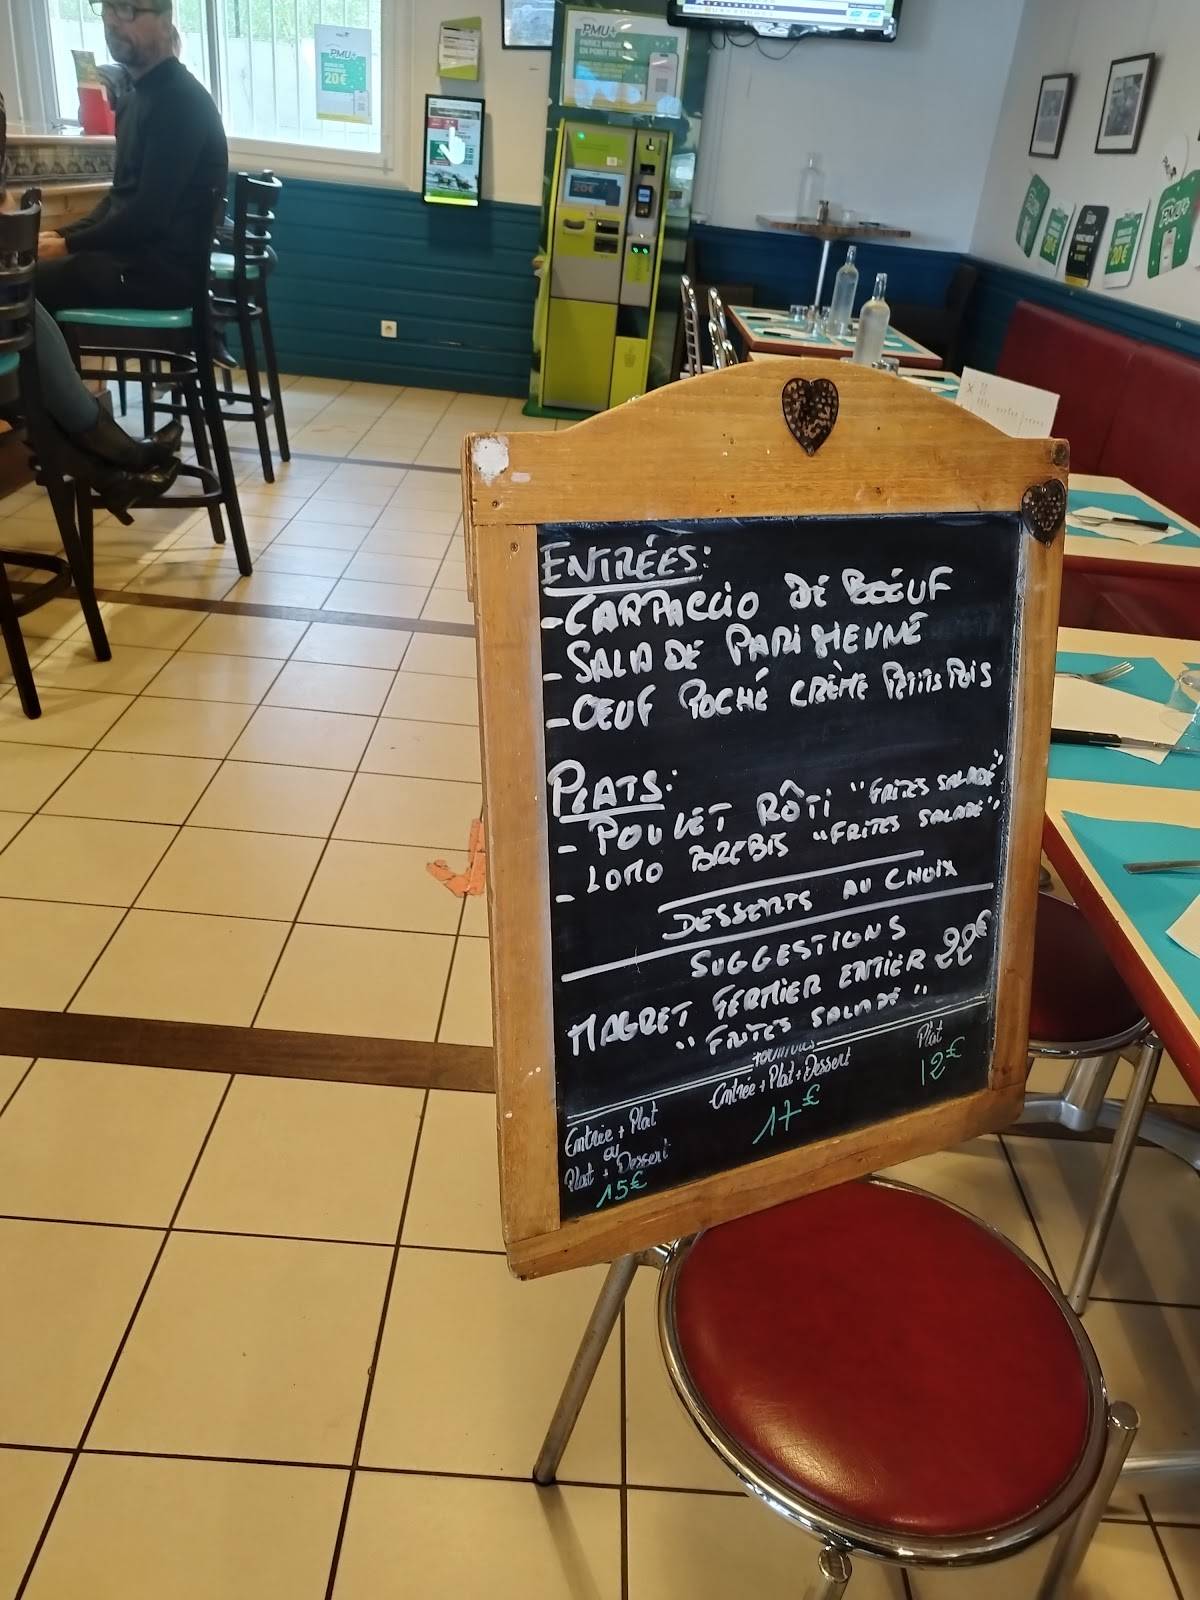 PMU+
20€
PMU+
PARIEZ MIEUX
EN POINT DE
20€
PMU+
20€
20€
ENTRÉES:
- CARPACCIO DE BŒUF
- SALADE PARISIENNE
- ŒUF POCHÉ CRÈME PETITS POIS
PLATS:
- POULET RÔTI "FRITES SALADE"
- LOMO BREBIS "FRITES SALADE"
DESSERTS AU CHOIX
SUGGESTIONS
MAGRET FERMIER ENTIER 22€
"FRITES SALADE"
FORMULES
Entrée + Plat
ou
Plat + Dessert
15€
Entrée + Plat + Dessert
17€
Plat
12€